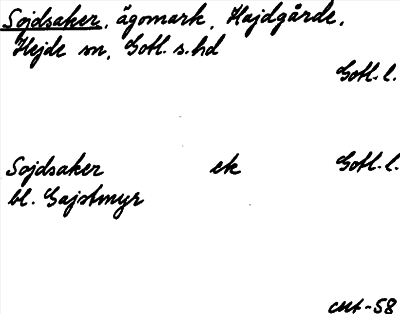 Sojdsaker, ägomark, Hajdgårde,
Hejde sn, Gotl. s. hd
Gotl. l.
Sojdsaker ek Gotl. l.
bl. Gajstmyr
-58